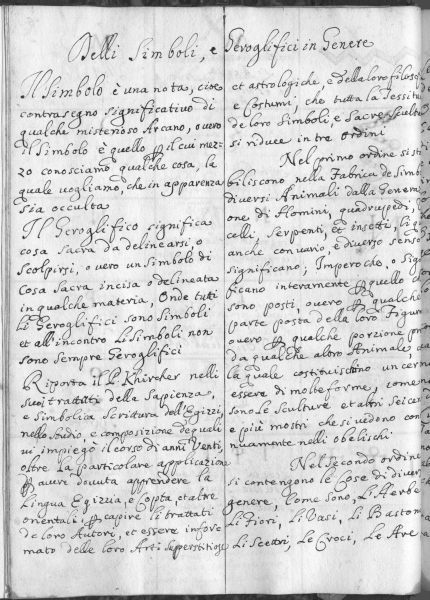 Delli Simboli, e Geroglifici in Genere
Il Simbolo è una nota, cioè
contrasegno significativo di
qualche misterioso Arcano, overo
il Simbolo è quello il cui mez-
zo conosciamo qualche cosa, la
quale vogliamo, che in apparenza
sia occulta
Il Geroglifico significa
cosa sacra da delinearsi, o
scolpirsi, o vero un simbolo di
Cosa sacra incisa o delineata
in qualche materia, Onde tuti
li Geroglifici sono Simboli
et all'incontro li Simboli non
sono sempre Geroglifici
Riporta il P. Khircher nelli
suoi trattati della Sapienza,
e simbolica scrittura dell'Egizzi,
nello studio, e composizione de quali
vi impiegò il corso di anni Venti,
oltre la particolare applicazione
avere dovuta apprendere la
lingua Egizzia e Copta, et altre
orientali capire li trattati
de loro Autori, et essere infor-
mato delle loro Arti superstitiose
et astrologiche, e della loro filoso
e Costumi, che tutta la Tessitu
de loro Simboli, e Sacre Scultu
si riduce in tre ordini
Nel primo ordine si sta
biliscono nella Fabrica de Simb
diversi Animali dalla Generati
one di Homini, quadrupedi,
celli, Serpenti, et insetti, li
anche con vario, e diverso senso
significano; Imperoche, o sig
ficano interamente quello ch
sono posti, overo qualche
parte posta della loro Figura
overo qualche porzione
da qualche altro Animale,
la quale costituiscono un cer
essere di molte forme, come
sono le Sculture et altri
e più mostri che si vedono conti
nuamente nelli obelischi
Nel secondo ordine
si contengono le Cose di diver
genere, Come sono, Li Herbe
Li Fiori, Li Vasi, Li Baston
Li Scettri, Le Croci, Le Are